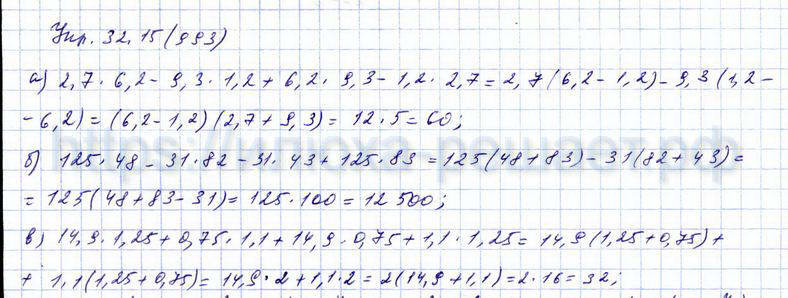 Упр. 32.15(993)
а) 2,7 · 6,2 - 9,3 · 1,2 + 6,2 · 9,3 - 1,2 · 2,7 = 2,7(6,2 - 1,2) - 9,3(1,2 -
- 6,2) = (6,2 - 1,2)(2,7 + 9,3) = 12 · 5 = 60;
б) 125 · 48 - 31 · 82 - 31 · 43 + 125 · 83 = 125(48 + 83) - 31(82 + 43) =
= 125(48 + 83 - 31) = 125 · 100 = 12 500;
в) 14,9 · 1,25 + 0,75 · 1,1 + 14,9 · 0,75 + 1,1 · 1,25 = 14,9(1,25 + 0,75) +
+ 1,1(1,25 + 0,75) = 14,9 · 2 + 1,1 · 2 = 2(14,9 + 1,1) = 2 · 16 = 32;